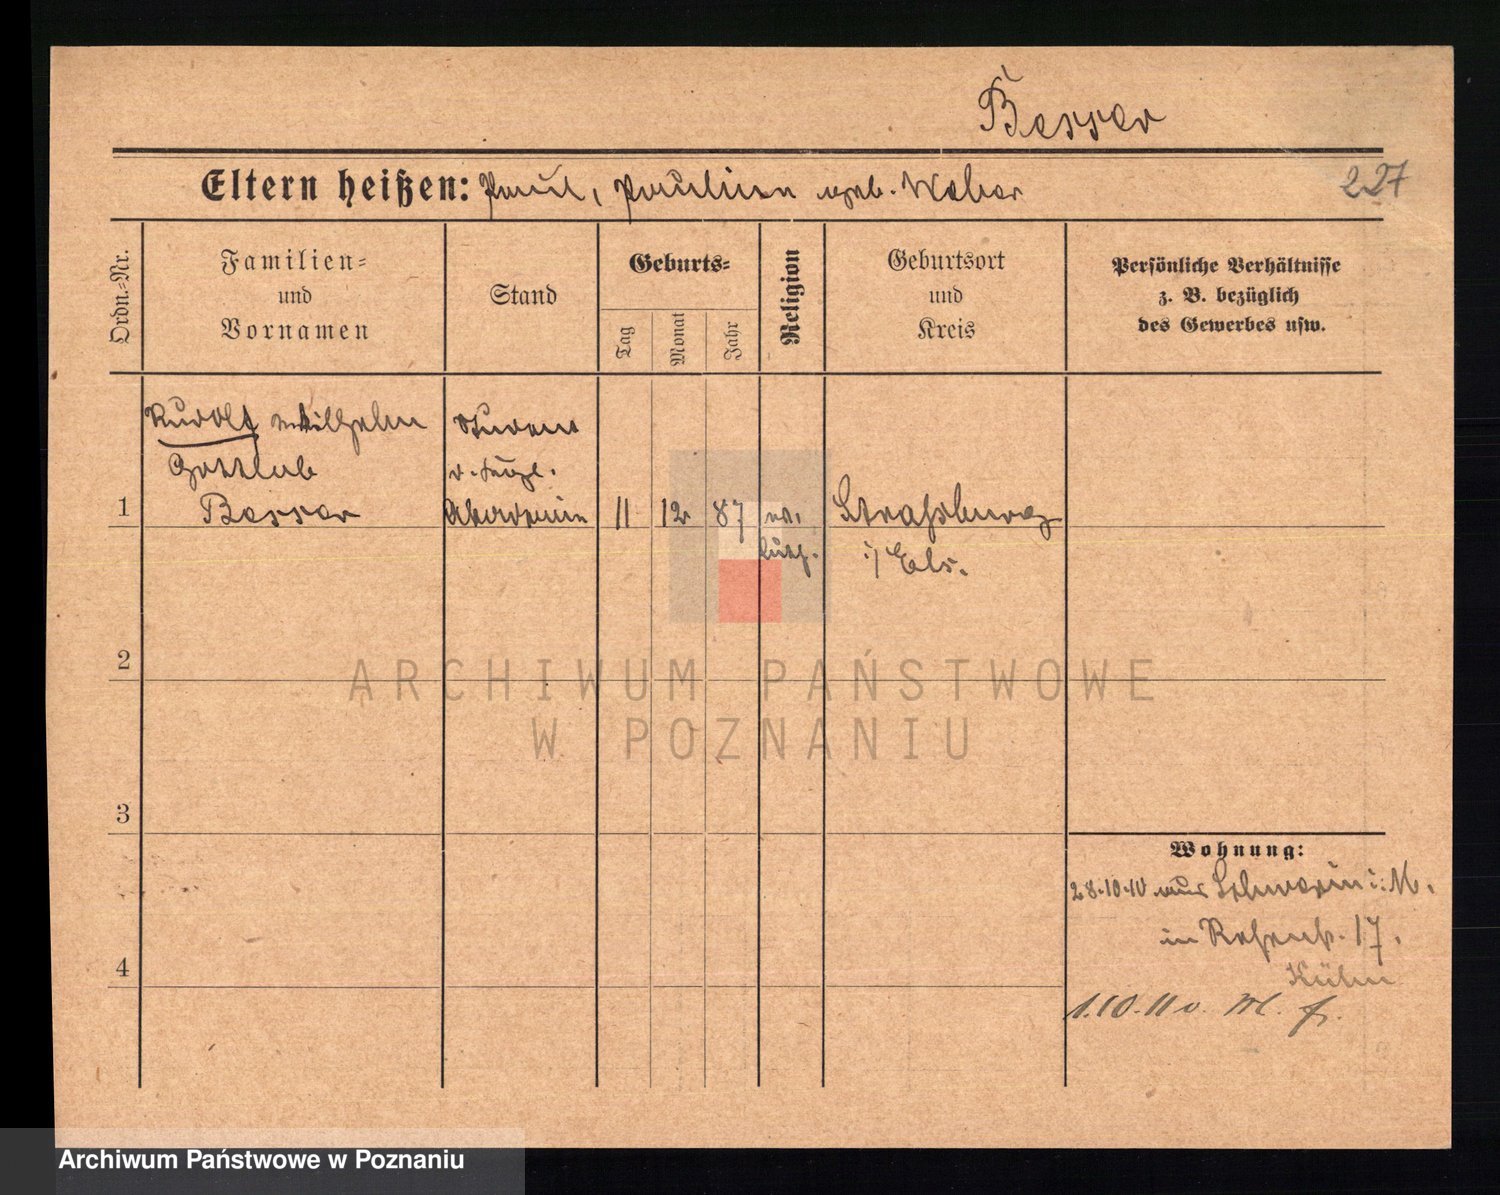 Besser
Eltern heißen: Paul, Paulina geb. Weber
227
Ordn.-Nr.
Familien-
und
Vornamen
Stand
Geburts-
Tag
Monat
Jahr
Religion
Geburtsort
und
Kreis
Persönliche Verhältnisse
z. B. bezüglich
des Gewerbes usw.
Rudolf Wilhelm
Gottlieb
Besser
Student
d. Kögl.
Akademie
1
11
12
87
ev.
luth.
Straßburg
i/Els.
2
3
4
Wohnung:
28.10.10 aus Schwerin i. M.
in 17.
Kühn
1.10.11 v. M. fr.
ARCHIWUM PAŃSTWOWE
W POZNANIU
Archiwum Państwowe w Poznaniu